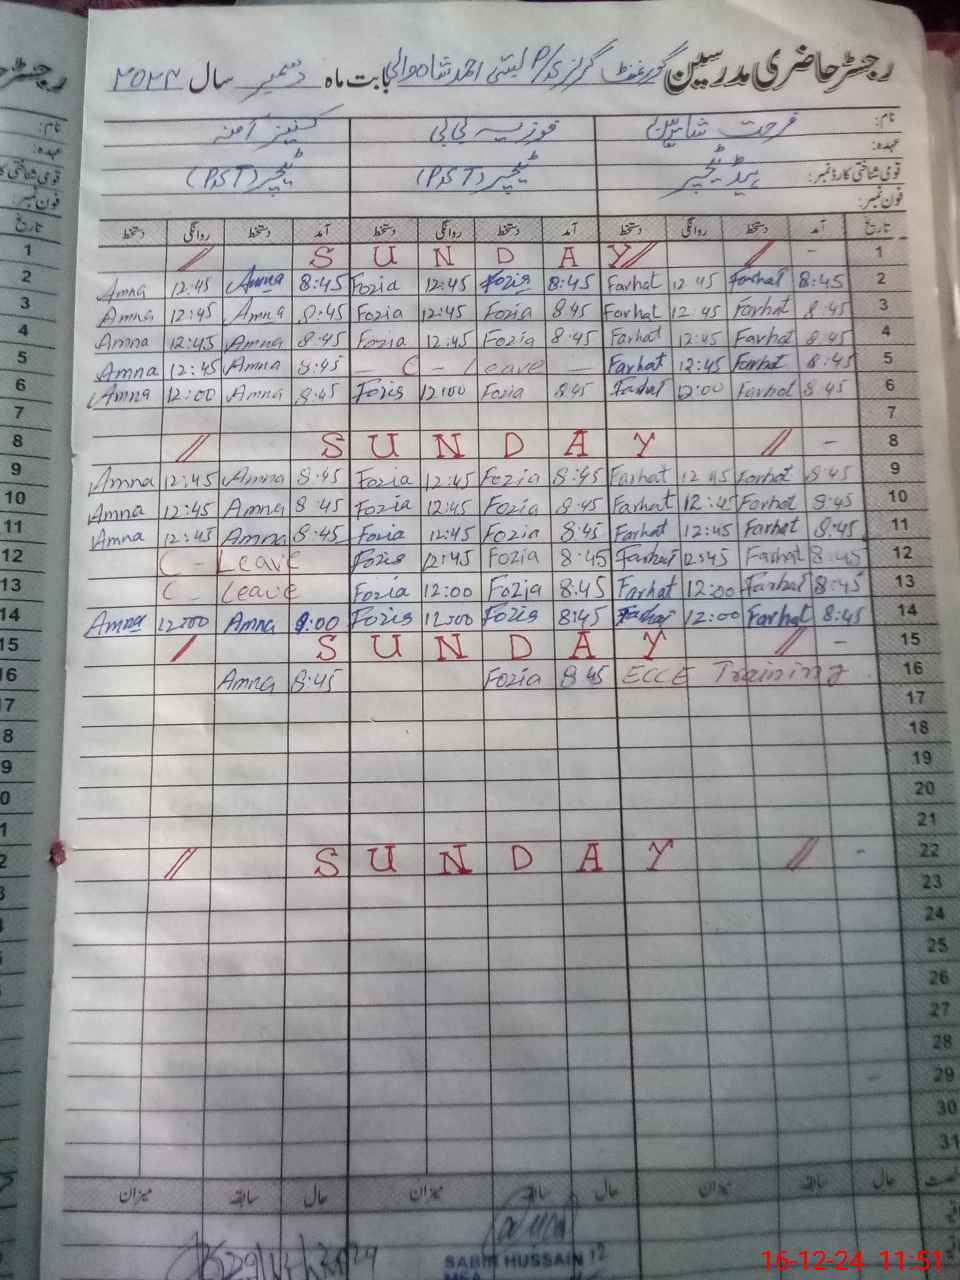 رجسٹر حاضری مدرسین گورنمنٹ گرلز P/S بستی احمد شاہ والی بابت ماہ دسمبر سال ۲۰۲۴
نام: فرحت شاہین فوزیہ بی بی کنیز آمنہ
عہدہ:
قومی شناختی کارڈ نمبر: ہیڈ ٹیچر ٹیچر (PST) ٹیچر (PST)
فون نمبر:
تاریخ آمد دستخط روانگی دستخط آمد دستخط روانگی دستخط آمد دستخط روانگی دستخط
// S U N D A Y // / - 1
Amna 12:45 Amna 8:45 Fozia 12:45 Fozia 8:45 Farhat 12 45 Farhat 8:45 2
Amna 12:45 Amna 8:45 Fozia 12:45 Fozia 8 45 Farhat 12:45 Farhat 8:45 3
Amna 12:45 Amna 8:45 Fozia 12:45 Fozia 8:45 Farhat 12:45 Farhat 8:45 4
Amna 12:45 Amna 8:45 — C - Leave — Farhat 12:45 Farhat 8:45 5
Amna 12:00 Amna 8:45 Fozia 12:00 Fozia 8:45 Farhat 12:00 Farhat 8:45 6
7
// S U N D A Y // - 8
Amna 12:45 Amna 8:45 Fozia 12:45 Fozia 8:45 Farhat 12 45 Farhat 8:45 9
Amna 12:45 Amna 8:45 Fozia 12:45 Fozia 8:45 Farhat 12:45 Farhat 8:45 10
Amna 12:45 Amna 8:45 Fozia 12:45 Fozia 8:45 Farhat 12:45 Farhat 8:45 11
C - Leave Fozia 12:45 Fozia 8:45 Farhat 12:45 Farhat 8:45 12
C - Leave Fozia 12:00 Fozia 8:45 Farhat 12:00 Farhat 8:45 13
Amna 12:00 Amna 9:00 Fozia 12:00 Fozia 8:45 Farhat 12:00 Farhat 8:45 14
/ S U N D A Y // - 15
Amna 8:45 Fozia 8 45 ECCE Training 16
17
18
19
20
21
// S U N D A Y // - 22
23
24
25
26
27
28
29
30
31
حال سابقہ میزان حال سابقہ میزان حال سابقہ میزان
SABIR HUSSAIN
MEA
16-12-24 11:51